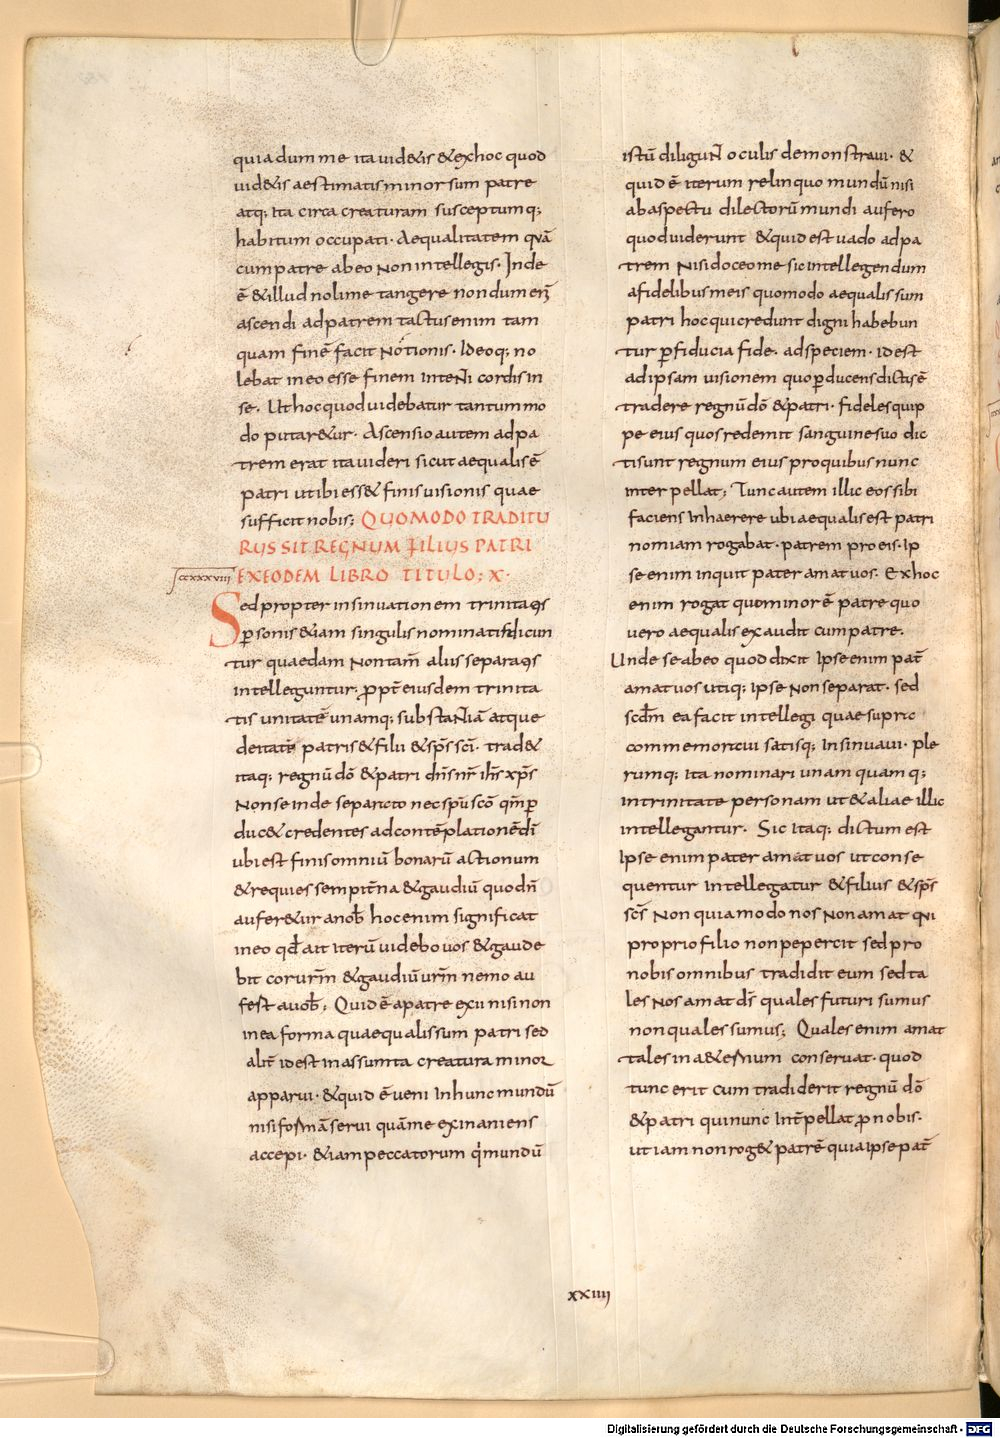 quia dum me ita uid&is &exhoc quod
uid&is aestimatis minor sum patre
atq; ita circa creaturam susceptumq;
habitum occupati. Aequalitatem quā
cum patre abeo non intellegis. Inde
ē &illud nolime tangere nondum eni
ascendi ad patrem tactus enim tam
quam finē facit notionis. Ideoq; no
lebat in eo esse finem intenti cordis in
se. Ut hoc quod uidebatur tantum mo
do putar&ur. Ascensio autem ad pa
trem erat ita uideri sicut aequalis ē
patri ut ibi ess& finis uisionis quae
sufficit nobis; QUOMODO TRADITU
RUS SIT REGNUM FILIUS PATRI
EX EODEM LIBRO TITULO; X.
ccxxxviii
Sed propter insinuationem trinitatis
p̄sonis &iam singulis nominatim dicun
tur quaedam non tam̄ aliis separatis
intelleguntur; ꝓpt̄ eiusdem trinita
tis unitatē unamq; substantiā atque
deitatē patris &filii &sp̄s sc̄i. trad&
itaq; regnū dō &patri dn̄s nr̄ ih̄s xp̄s
Non se inde separato nec sp̄u scō qm̄ p̄
duc& credentes ad contēplationē dī
ubi est finis omniū bonarū actionum
&requies sempit̄na &gaudiū quod n̄
aufer&ur a nob̄ hoc enim significat
in eo qd̄ ait iterū uidebo uos &gaude
bit cor ur̄m &gaudiū ur̄m nemo au
fert a uob̄; Quid ē a patre exii nisi non
in ea forma qua aequalis sum patri sed
alit̄ id est in assumta creatura minor
apparui. &quid ē ueni in hunc mundū
nisi formā serui quā me exinaniens
accepi. &iam peccatorum qi mundū
istū diligunt oculis demonstraui. &
quid ē iterum relinquo mundū nisi
ab aspectu dilectorū mundi aufero
quod uiderunt &quid est uado ad pa
trem Nisi doceo me sic intellegendum
a fidelibus meis quomodo aequalis sum
patri hoc qui credunt digni habebun
tur p̄ fiducia fide. ad speciem. id est
ad ipsam uisionem quo p̄ducens dictus ē
tradere regnū dō &patri. fideles quip
pe eius quos redemit sanguine suo dic
ti sunt regnum eius pro quibus nunc
inter pellat; Tunc autem illic eos sibi
faciens inhaerere ubi aequalis est patri
non iam rogabat. patrem pro eis. Ip
se enim inquit pater amat uos. Ex hoc
enim rogat quo minor ē patre quo
uero aequalis exaudit cum patre.
Unde se ab eo quod dixit Ipse enim pat̄
amat uos utiq; ipse non separat. sed
scd̄m ea facit intellegi quae supra
commemoraui satisq; insinuaui. ple
rumq; ita nominari unam quamq;
in trinitate personam ut &aliae illic
intellegantur. Sic itaq; dictum est
Ipse enim pater amat uos ut conse
quentur intellegatur &filius &sp̄s
sc̄s Non quia modo nos non amat qui
proprio filio non pepercit sed pro
nobis omnibus tradidit eum sed ta
les nos amat ds̄ quales futuri sumus
non quales sumus; Quales enim amat
tales in a&ernum conseruat. quod
tunc erit cum tradiderit regnū dō
&patri qui nunc int̄pellat ꝓ nobis.
ut iam non rog& patrē quia ipse pat̄
xxiiii
Digitalisierung gefördert durch die Deutsche Forschungsgemeinschaft - DFG